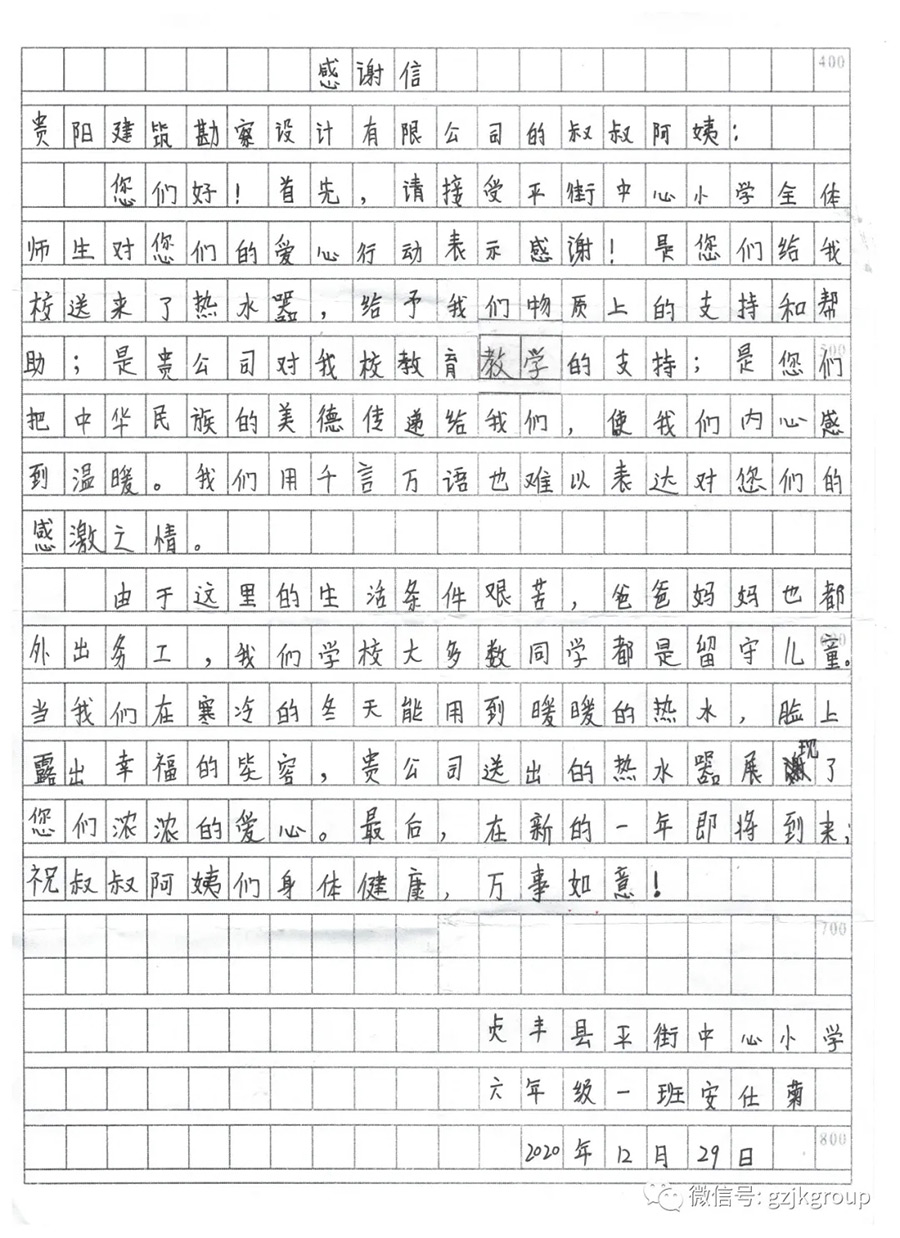 400
感谢信
贵阳建筑勘察设计有限公司的叔叔阿姨:
您们好!首先,请接受平街中心小学全体
师生对您们的爱心行动表示感谢!是您们给我
校送来了热水器,给予我们物质上的支持和帮
助;是贵公司对我校教育教学的支持;是您们
把中华民族的美德传递给我们,使我们内心感
到温暖。我们用千言万语也难以表达对您们的
感激之情。
由于这里的生活条件艰苦,爸爸妈妈也都
外出务工,我们学校大多数同学都是留守儿童。
当我们在寒冷的冬天能用到暖暖的热水,脸上
露出幸福的笑容,贵公司送出的热水器展现了
您们浓浓的爱心。最后,在新的一年即将到来;
祝叔叔阿姨们身体健康,万事如意!
700
贞丰县平街中心小学
六年级一班安仕菊
2020年12月29日
800
微信号: gzjkgroup